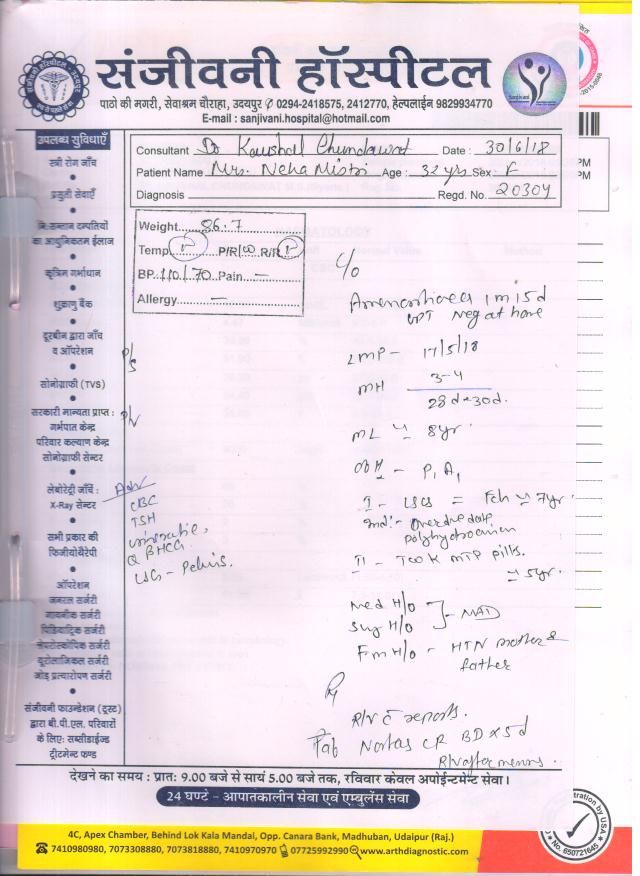 संजीवनी हॉस्पीटल
पाठो की मगरी, सेवाश्रम चौराहा, उदयपुर ✆ 0294-2418575, 2412770, हेल्पलाईन 9829934770
E-mail : sanjivani.hospital@hotmail.com
Consultant Dr Kaushal Chundawat Date : 30/6/18
Patient Name Mrs. Neha Mistri Age : 32 yrs Sex F
Diagnosis Regd. No. 20304
उपलब्ध सुविधाएँ
स्त्री रोग जाँच
प्रसुती सेवाएँ
नि:सन्तान दम्पतियों
का आधुनिकतम ईलाज
कृत्रिम गर्भाधान
शुक्राणु बैंक
दूरबीन द्वारा जाँच
व ऑपरेशन
सोनोग्राफी (TVS)
सरकारी मान्यता प्राप्त :
गर्भपात केन्द्र
परिवार कल्याण केन्द्र
सोनोग्राफी सेन्टर
लेबोरेट्री जाँचें :
X-Ray सेन्टर
सभी प्रकार की
फिजीयोथैरेपी
ऑपरेशन
जनरल सर्जरी
गायनीक सर्जरी
पिडियाट्रिक सर्जरी
लेपरोस्कोपिक सर्जरी
यूरोलाजिकल सर्जरी
जोइ प्रत्यारोपण सर्जरी
संजीवनी फाउन्डेशन (ट्रस्ट)
द्वारा बी.पी.एल. परिवारों
के लिए: सब्सीडाईज्ड
ट्रीटमेन्ट फण्ड
Weight 86.7
Temp P/R 100 R/R
BP 110/70 Pain —
Allergy —
P/S
P/V
Adv
CBC
TSH
QBHCG
USG - Pelvis.
C/o
1m 15d
UPT Neg at home
LMP - 17/5/18
MH 3-4
28d-30d.
ML ≃ 8yr
OH - P1 A1
I - LSCS = Fch ≃ 7yr.
Ind:- Overdue date
polyhydroamnion
II - Took MTP pills.
≃ 5yr.
Med H/o
Surg H/o - NAD
Fm H/o - HTN mother &
father
R/V c reports.
Tab Nortas CR BD x 5d
R/V after menses.
देखने का समय : प्रात: 9.00 बजे से सायं 5.00 बजे तक, रविवार केवल अपोईन्टमेन्ट सेवा।
24 घण्टे - आपातकालीन सेवा एवं एम्बुलेंस सेवा
4C, Apex Chamber, Behind Lok Kala Mandal, Opp. Canara Bank, Madhuban, Udaipur (Raj.)
7410980980, 7073308880, 7073818880, 7410970970 07725992990 www.arthdiagnostic.com
No. 650721645